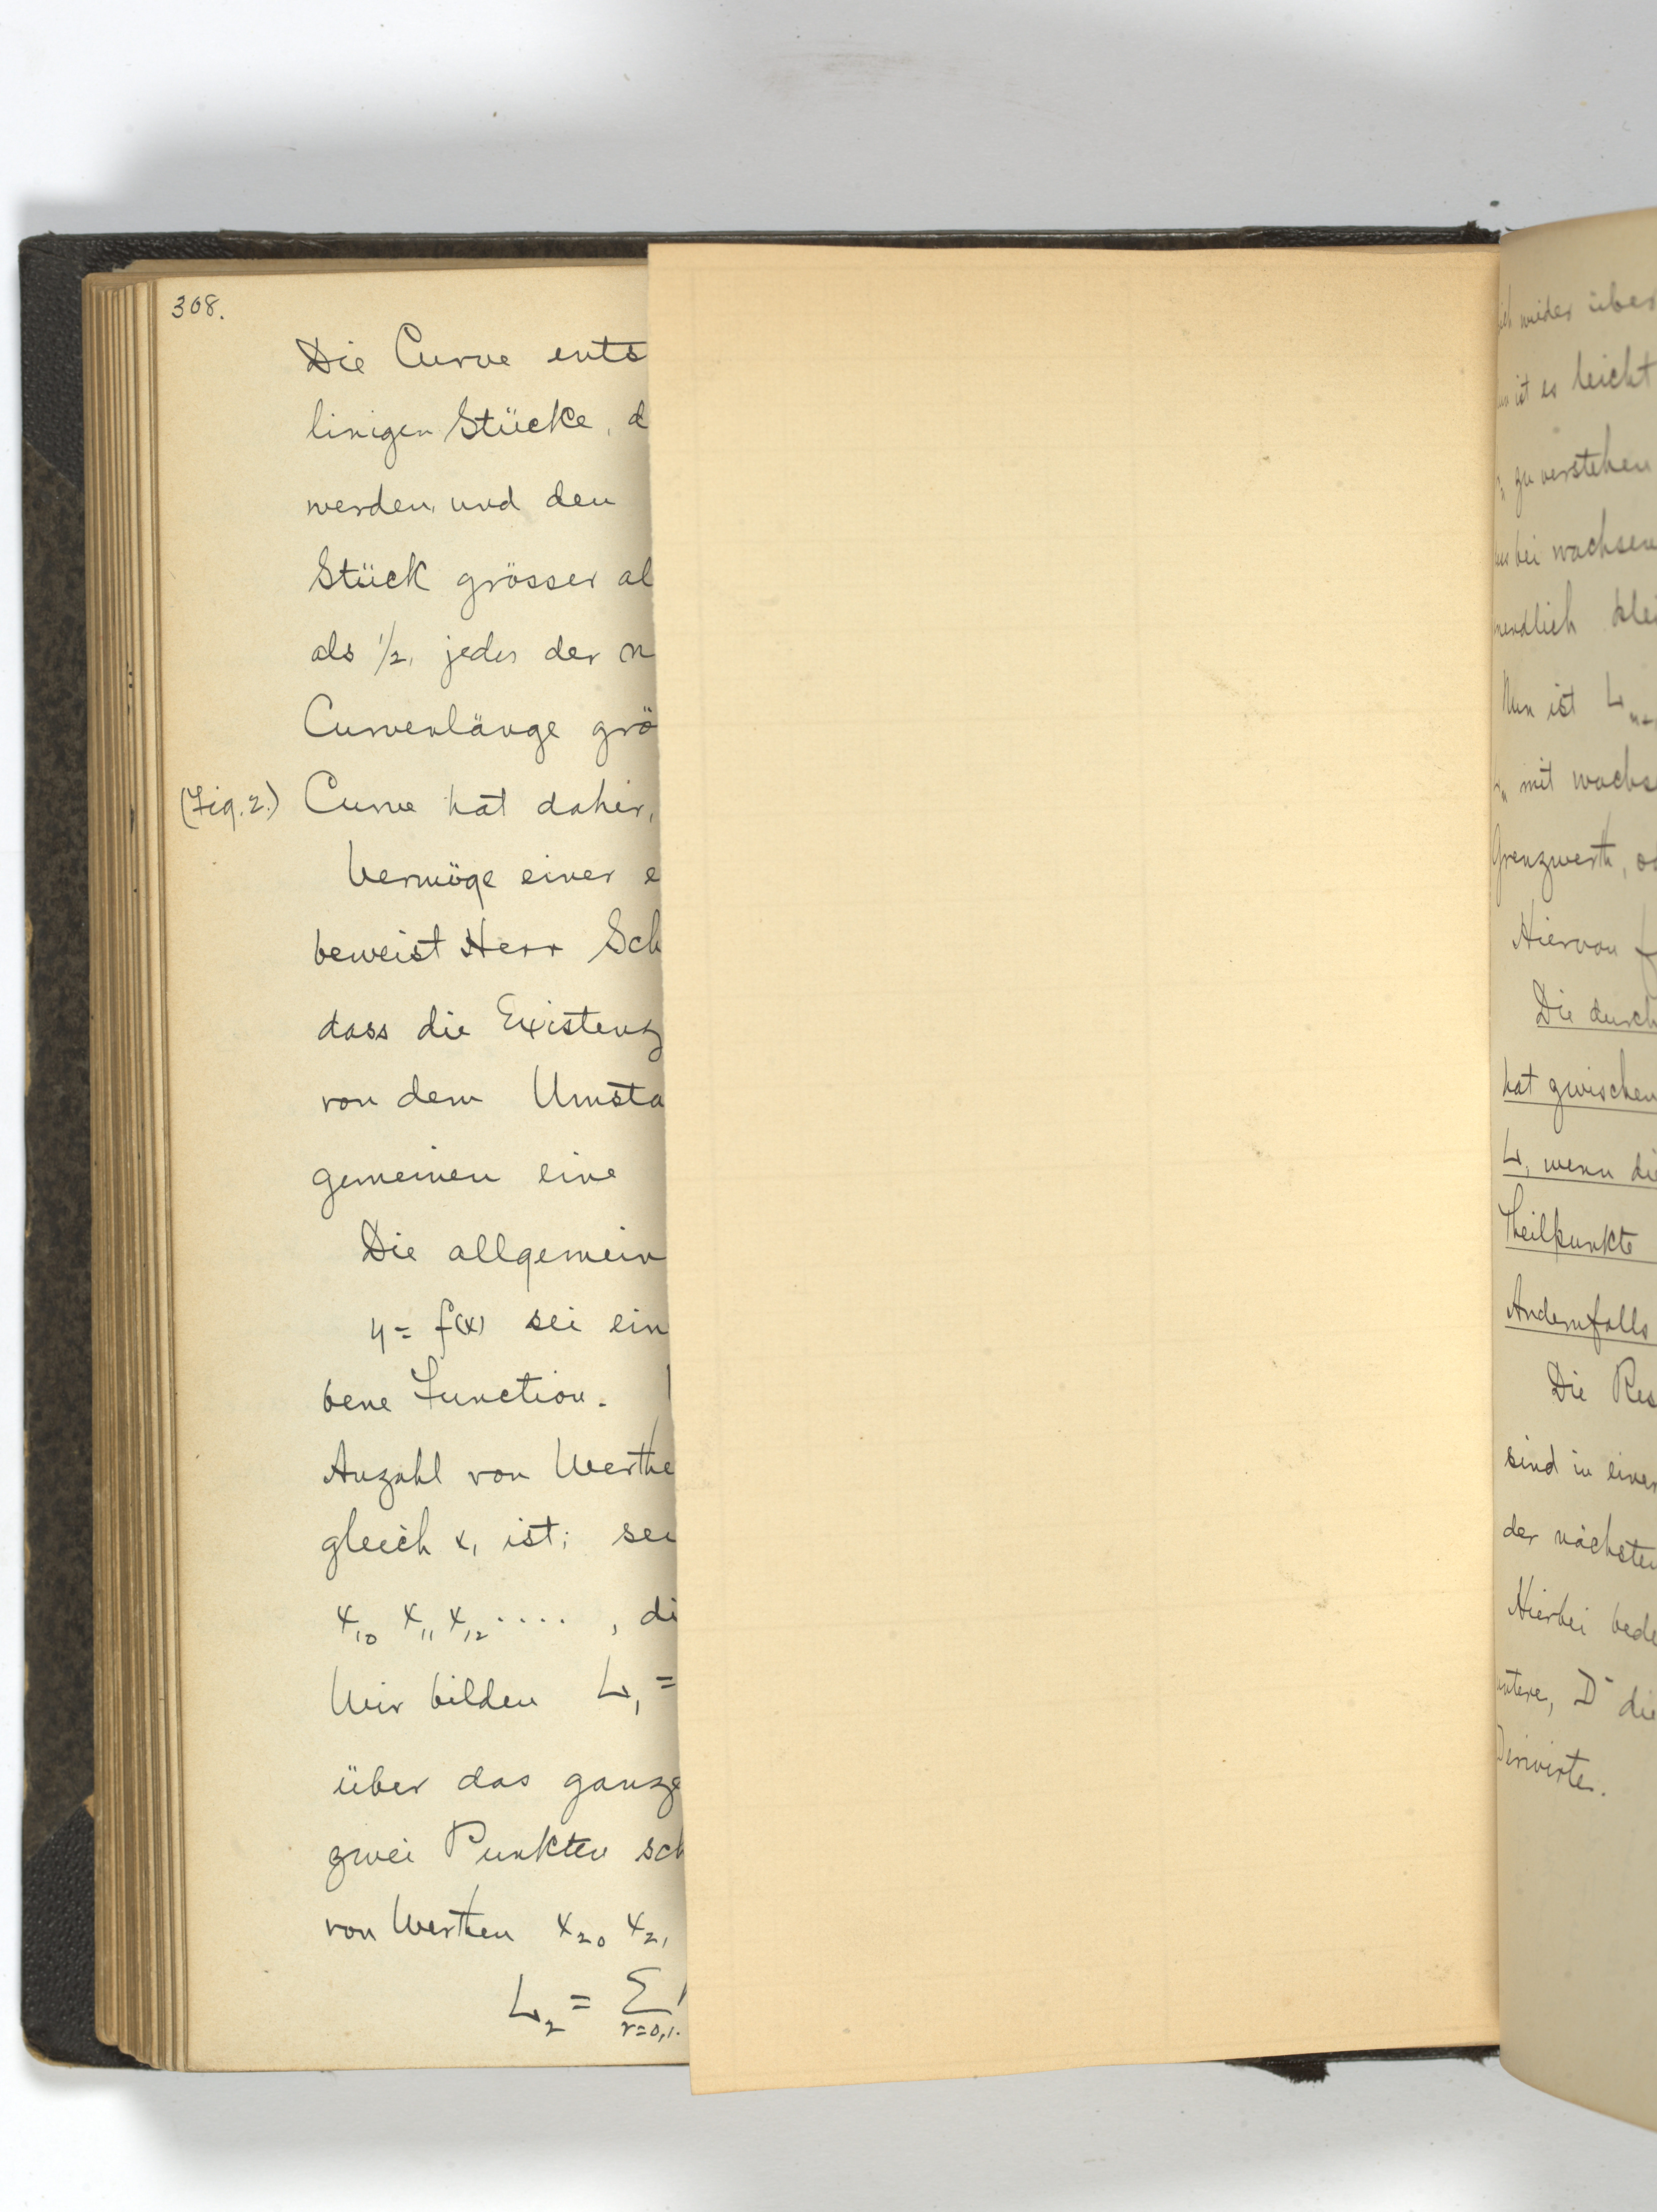 308.
Die Curve ents
linigen Stücke, d
werden, und den
Stück grösser al
als 1/2, jedes der n
Curvenlänge grö
(Fig. 2.) Curve hat daher,
Vermöge einer e
beweist Herr Sch
dass die Existenz
von dem Umsta
gemeinen eine
Die allgemein
y = f(x) sei ein
bene Function.
Anzahl von Werthe
gleich x₁ ist; sei
x₁₀ x₁₁ x₁₂ ...., di
Wir bilden L₁ =
über das ganze
zwei Punkten sch
von Werthen x₂₀ x₂₁
L₂ = Σ r=0,1.
wieder über
ist es leicht
zu verstehen
bei wachsen
nendlich klei
Nun ist L
mit wachse
Grenzwerth, od
Hiervon f
Die durch
hat zwischen
L, wenn die
Theilpunkte
Andernfalls
Die Res
sind in einer
der nächsten
Hierbei bede
untere, D⁻ die
Derivirte.